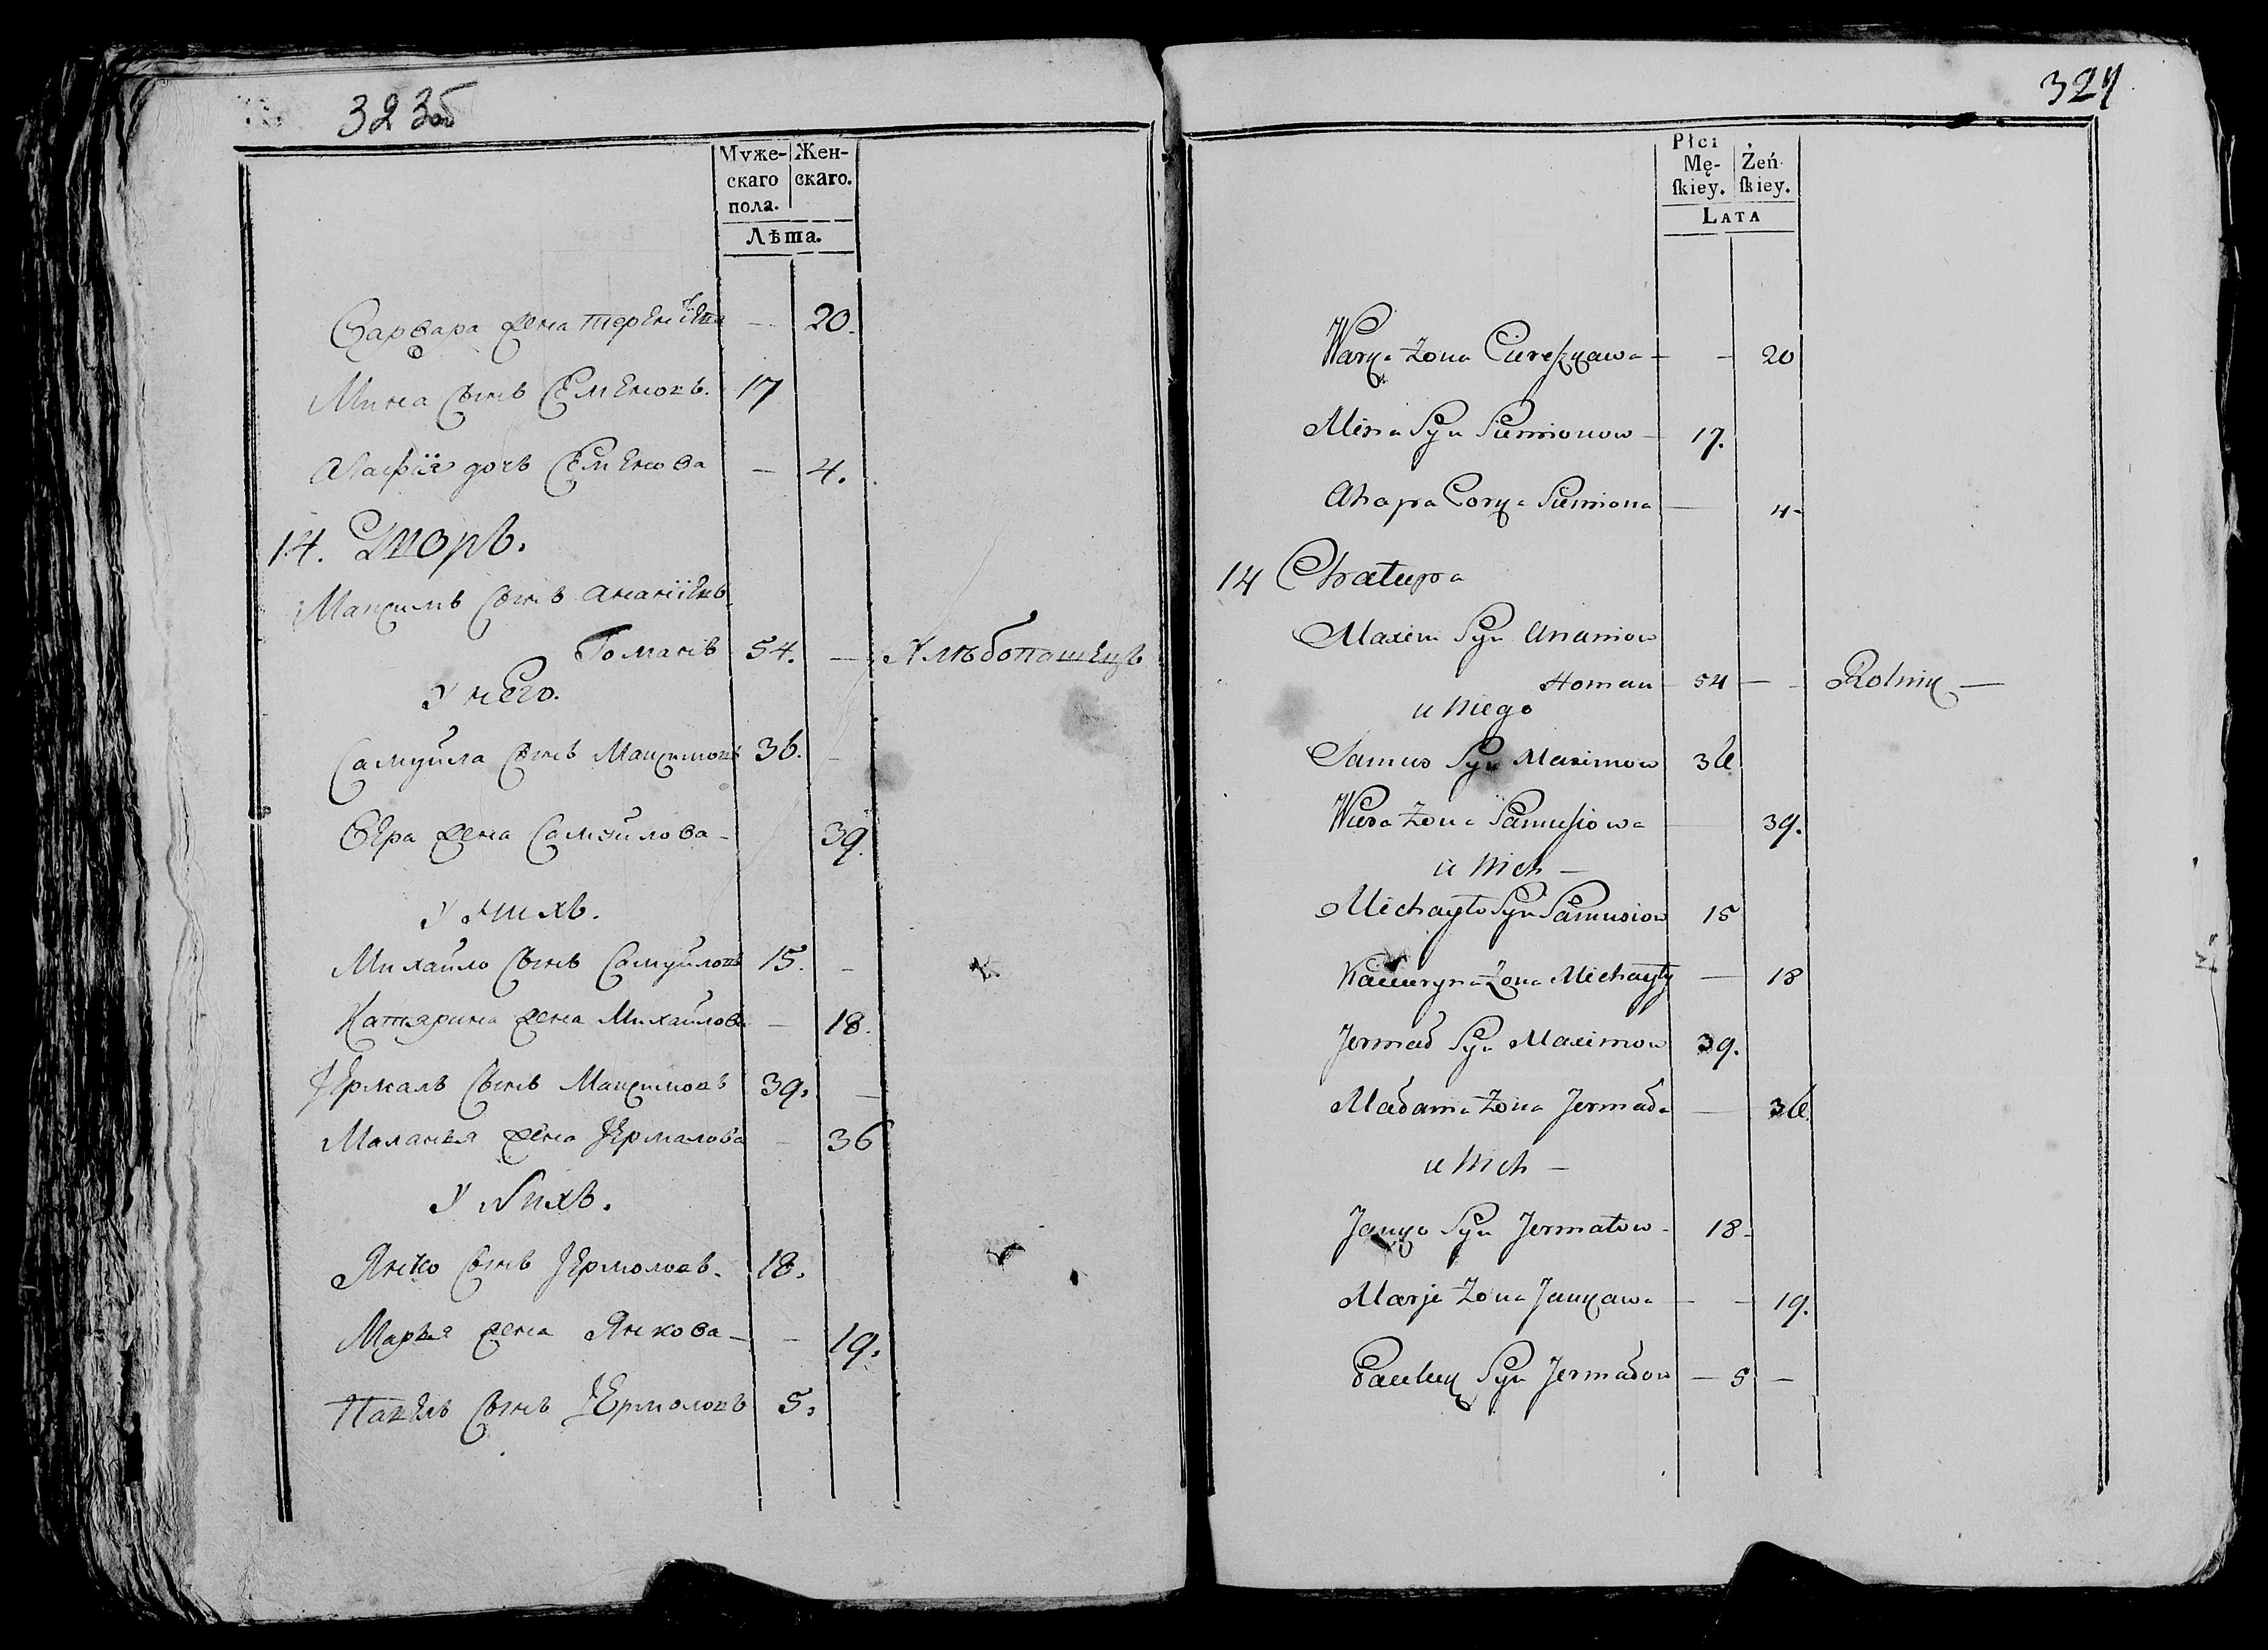 323об
Муже- Жен-
скаго скаго.
пола.
Лѣта.
Варвара жена 20.
Мина сынъ Семеновъ. 17
Агафія дочь Семенова — 4.
14. Дворъ.
Максимъ сынъ Ананіевъ
Романъ 54. — Хлѣбопашецъ
У него.
Самуйла сынъ Максимовъ 36. —
Вера жена Самуйлова — 39.
У нихъ.
Михайло сынъ Самуйловъ 15. —
Катярина жена Михайлова — 18.
Ермалъ сынъ Максимовъ 39. —
Маланья жена Ермалова — 36
У нихъ.
Янко сынъ Ермоловъ. 18.
Марья жена Янкова — — 19.
Павелъ сынъ Ермоловъ 5.
324
Płci
Mę- Żeń-
ſkiey. ſkiey.
LATA
Żona — — 20
Mina Syn Siemionow — 17.
Córka Siemiona — 4-
14 Chałupa
Maxim Syn Ananiow
Homan — 54 — — Rolnik —
u Niego
Samuś Syn Maximow 36
Wiera Żona Samusiowa — 39.
u Nich —
Michayło Syn Samusiow 15
Kateryna Żona Michayły — 18
Jermał Syn Maximow 39.
Małania Żona Jermała — 36
u Nich —
Janko Syn Jermałow — 18-
Marja Żona Jankawa — — 19.
Pauluk Syn Jermałow — 5 —